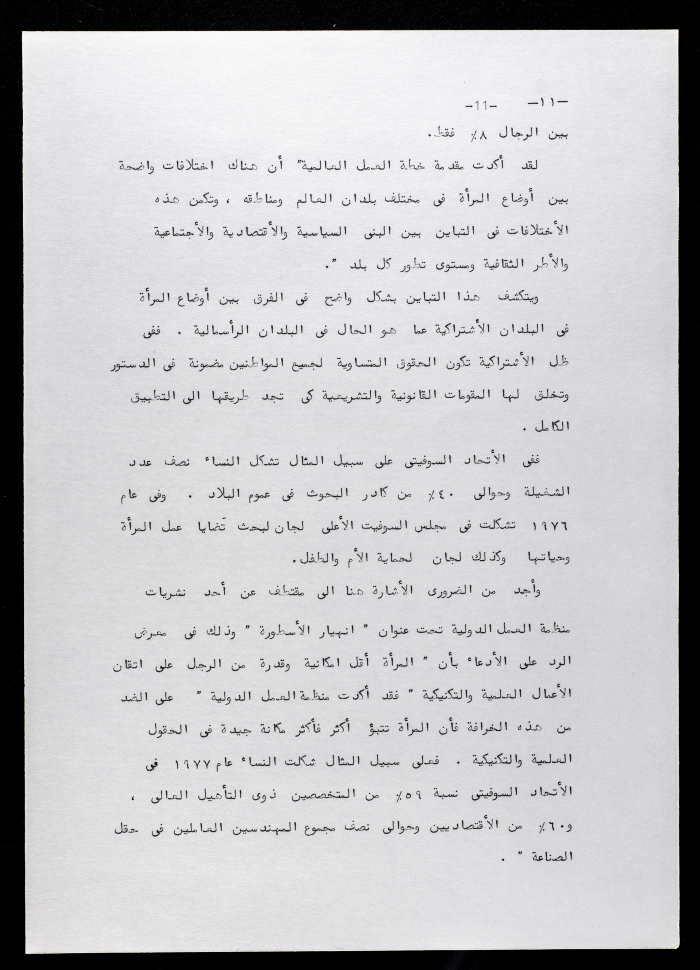 -١١-   -11-
بين الرجال ٨٪ فقط.
لقد أكدت مقدمة خطة العمل العالمية" أن هناك اختلافات واضحة
بين أوضاع المرأة فى مختلف بلدان العالم ومناطقه ، وتكمن هذه
الأختلافات فى التباين بين البنى السياسية والأقتصادية والأجتماعية
والأطر الثقافية ومستوى تطور كل بلد ".
ويتكشف هذا التباين بشكل واضح فى الفرق بين أوضاع المرأة
فى البلدان الأشتراكية عما هو الحال فى البلدان الرأسمالية . ففى
ظل الأشتراكية تكون الحقوق المتساوية لجميع المواطنين مضمونة فى الدستور
وتخلق لها المقومات القانونية والتشريعية كى تجد طريقها الى التطبيق
الكامل .
ففى الأتحاد السوفيتى على سبيل المثال تشكل النساء نصف عدد
الشغيلة وحوالى ٤٠٪ من كادر البحوث فى عموم البلاد . وفى عام
١٩٧٦ تشكلت فى مجلس السوفيت الأعلى لجان لبحث قضايا عمل المرأة
وحياتها وكذلك لجان لحماية الأم والطفل.
وأجد من الضرورى الأشارة هنا الى مقتطف عن أحد نشريات
منظمة العمل الدولية تحت عنوان " انهيار الأسطورة " وذلك فى معرض
الرد على الأدعاء بأن " المرأة أقل امكانية وقدرة من الرجل على اتقان
الأعمال العلمية والتكنيكية " فقد أكدت منظمة العمل الدولية " على الضد
من هذه الخرافة فأن المرأة تتبؤ أكثر فأكثر مكانة جيدة فى الحقول
العلمية والتكنيكية . فعلى سبيل المثال شكلت النساء عام ١٩٧٧ فى
الأتحاد السوفيتى نسبة ٥٩٪ من المتخصصين ذوى التأهيل العالى ،
و٦٠٪ من الأقتصاديين وحوالى نصف مجموع المهندسين العاملين فى حقل
الصناعة " .